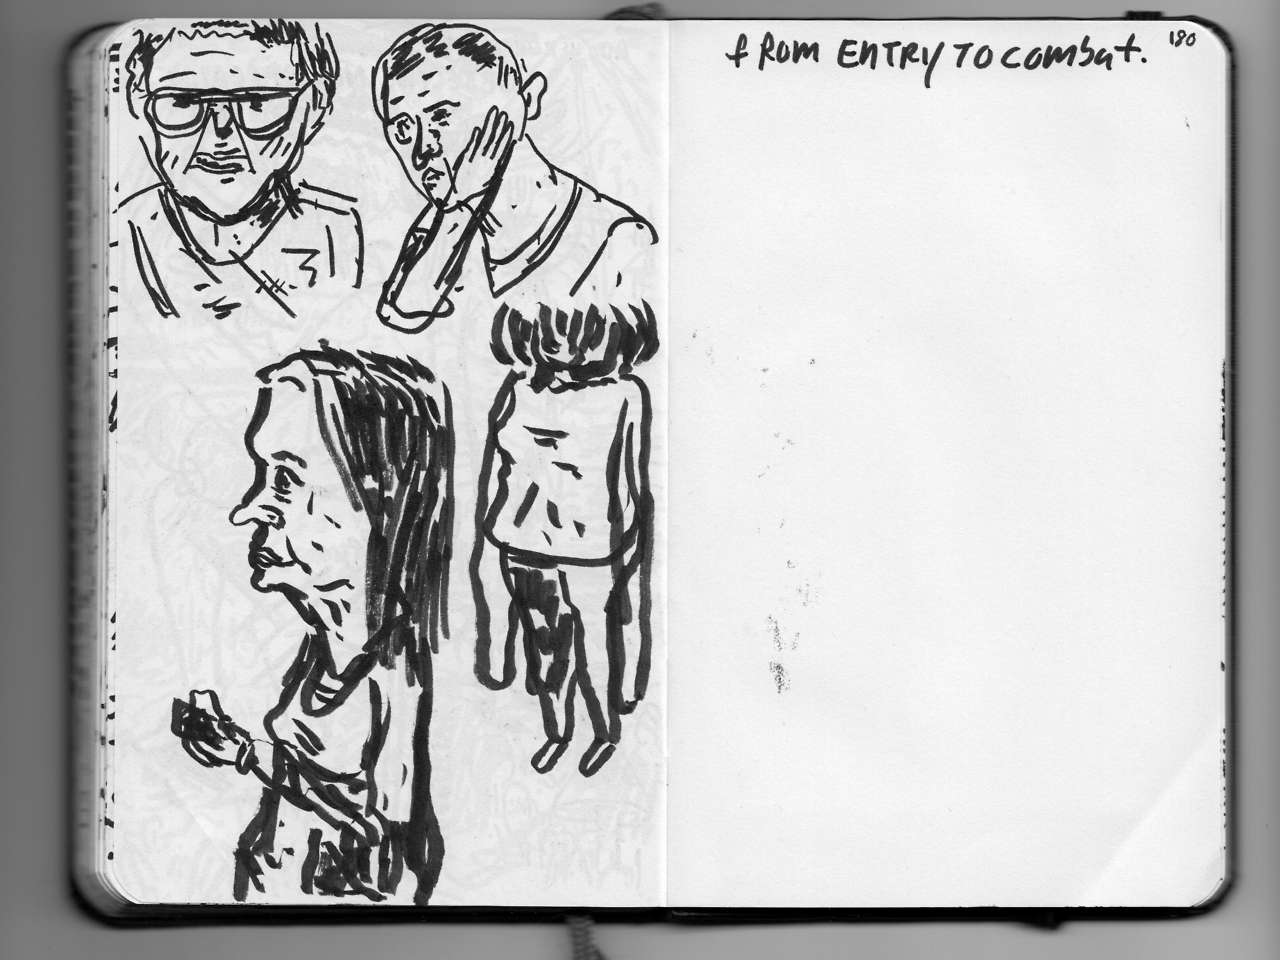 fROM ENTRY TO combat.
180